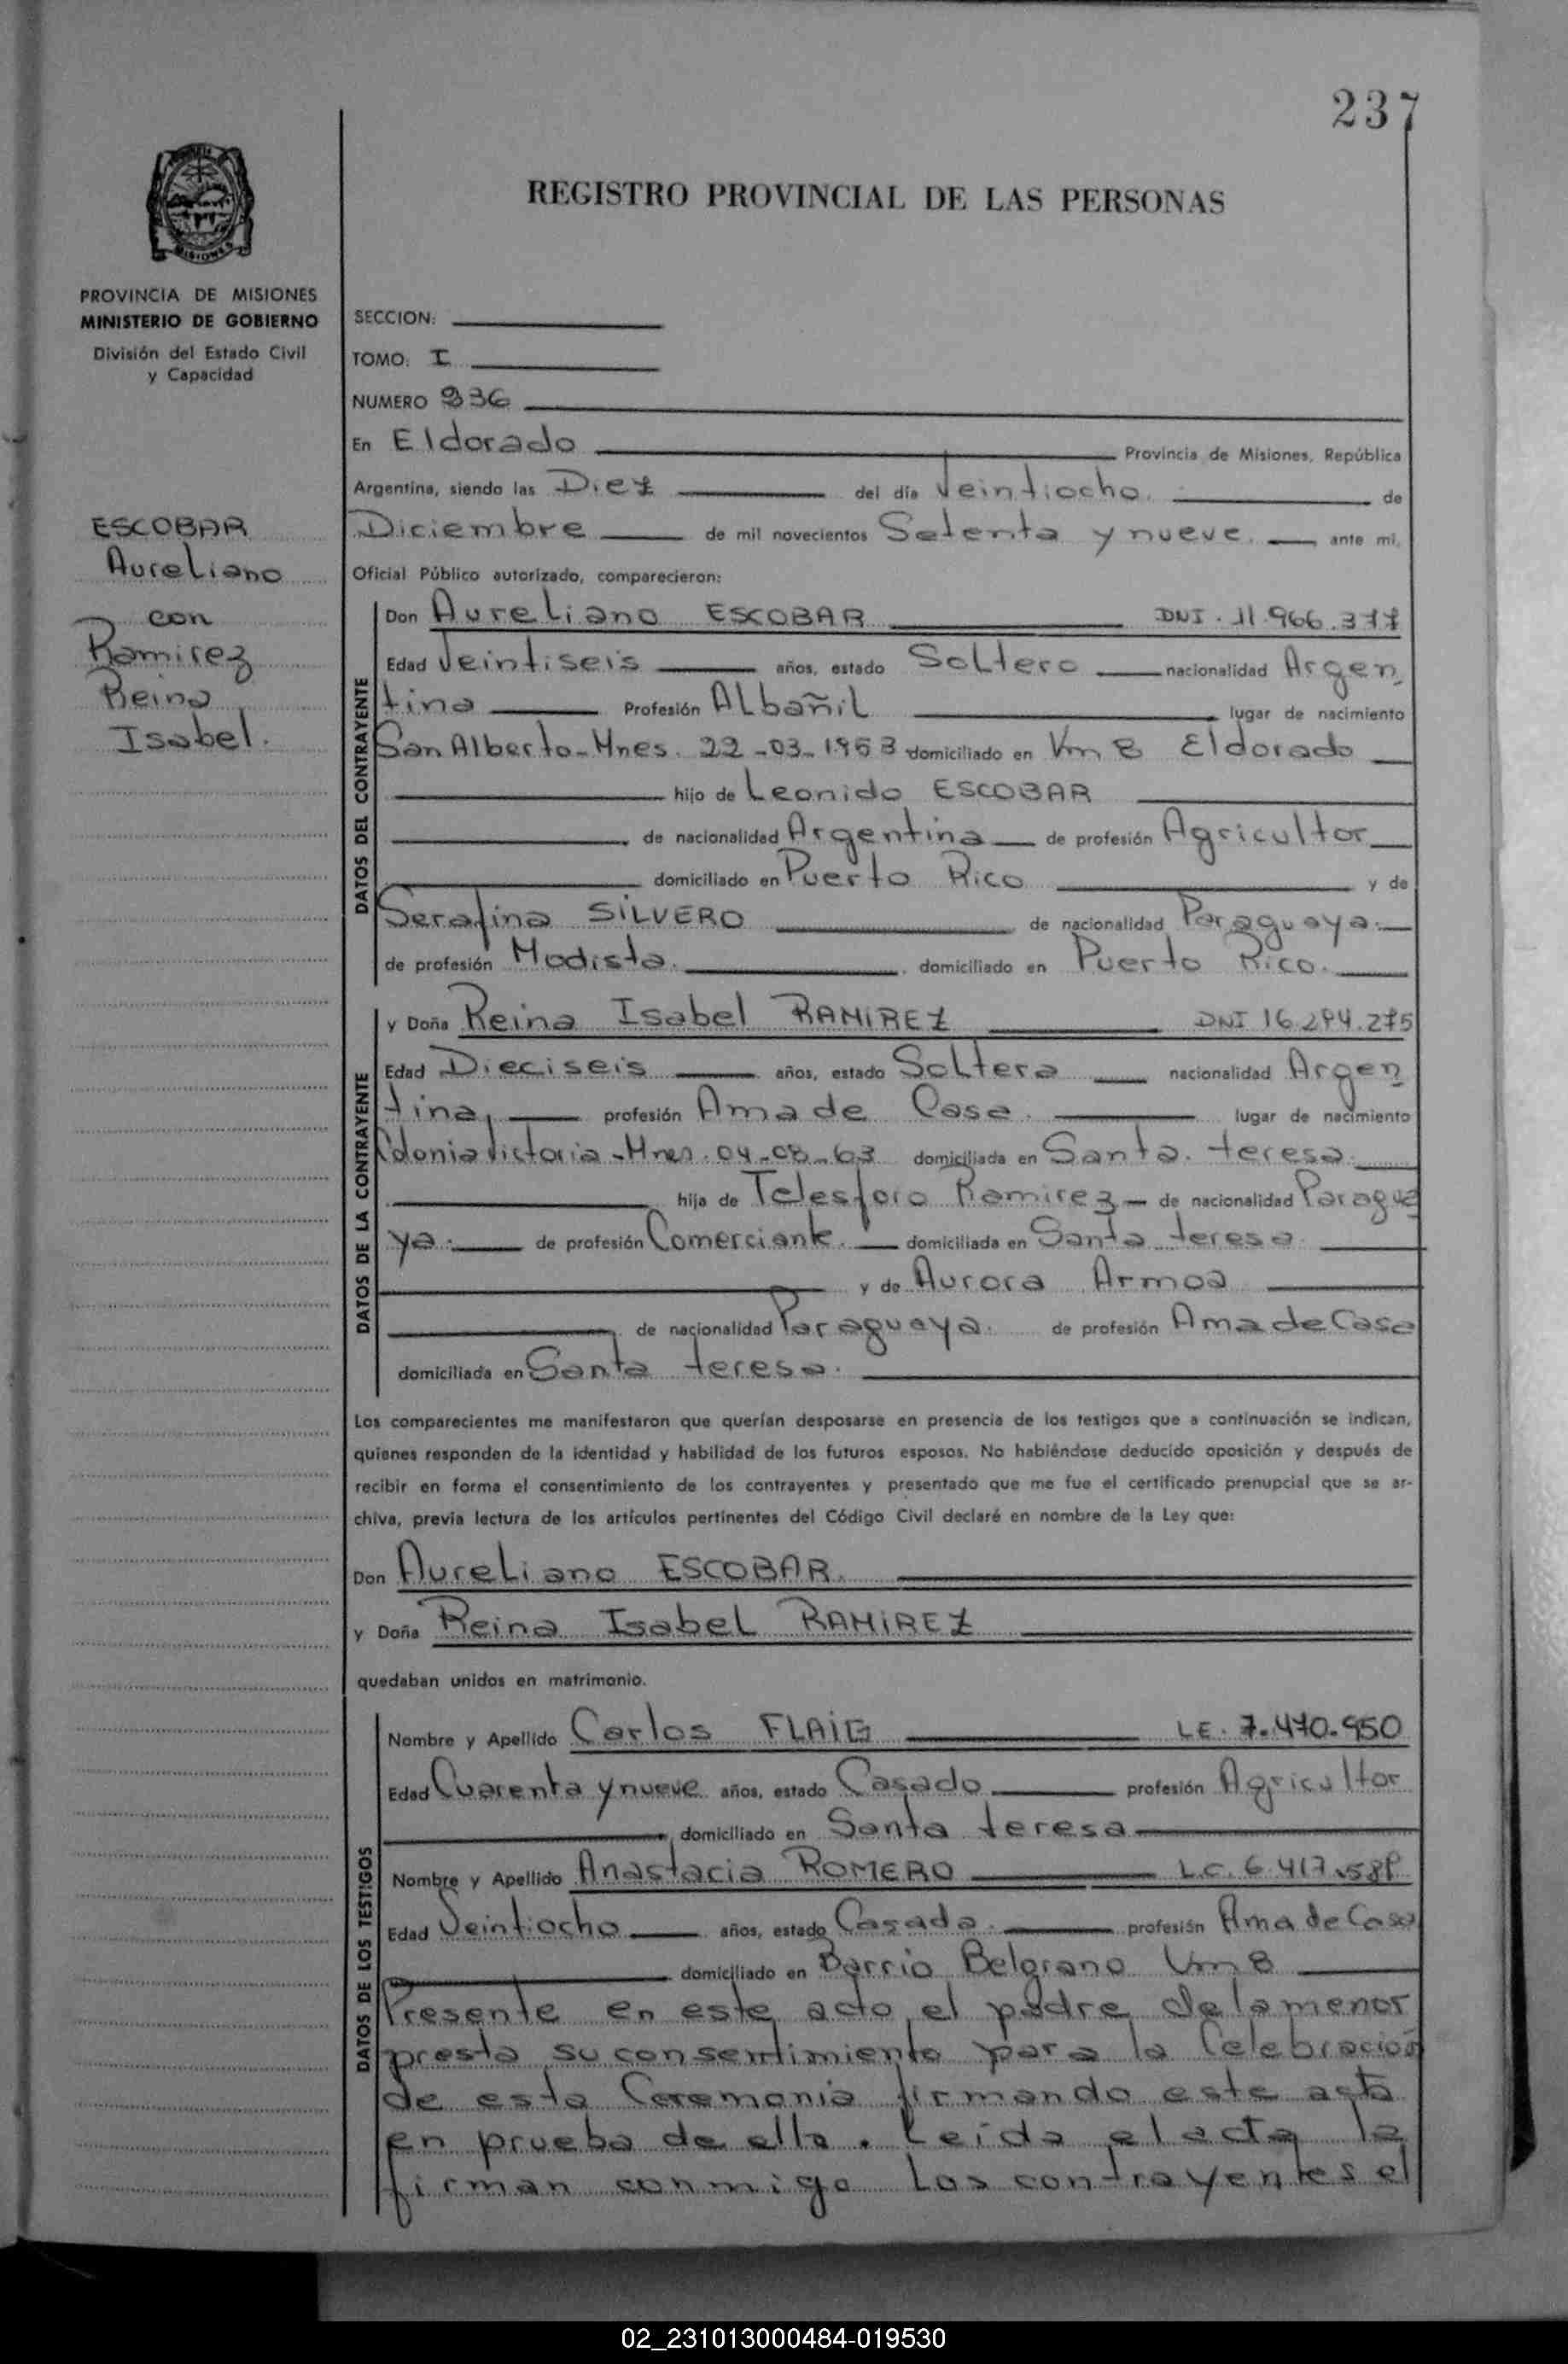 237
REGISTRO PROVINCIAL DE LAS PERSONAS
MISIONES
PROVINCIA DE MISIONES
MINISTERIO DE GOBIERNO
División del Estado Civil
y Capacidad
ESCOBAR
Aureliano
con
Ramirez
Reina
Isabel.
SECCION:
TOMO: I
NUMERO 236
En Eldorado Provincia de Misiones, República
Argentina, siendo las Diez del día Veintiocho. de
Diciembre de mil novecientos Setenta y nueve. ante mi,
Oficial Público autorizado, comparecieron:
DATOS DEL CONTRAYENTE
Don Aureliano ESCOBAR DNI. 11.966.377
Edad Veintiseis años, estado Soltero nacionalidad Argen
tina Profesión Albañil lugar de nacimiento
San Alberto-Mnes. 22-03-1953 domiciliado en Km 8 Eldorado
hijo de Leonido ESCOBAR
de nacionalidad Argentina de profesión Agricultor
domiciliado en Puerto Rico y de
Serafina SILVERO de nacionalidad Paraguaya.
de profesión Modista. domiciliado en Puerto Rico.
DATOS DE LA CONTRAYENTE
y Doña Reina Isabel RAMIREZ DNI 16.294.275
Edad Dieciseis años, estado Soltera nacionalidad Argen
tina, profesión Ama de Casa. lugar de nacimiento
Colonia Victoria-Mnes. 04-08-63 domiciliada en Santa. teresa.
hija de Telesforo Ramirez de nacionalidad Paragua
ya. de profesión Comerciante. domiciliada en Santa teresa.
y de Aurora Armoa
de nacionalidad Paraguaya. de profesión Ama de Casa
domiciliada en Santa teresa.
Los comparecientes me manifestaron que querían desposarse en presencia de los testigos que a continuación se indican,
quienes responden de la identidad y habilidad de los futuros esposos. No habiéndose deducido oposición y después de
recibir en forma el consentimiento de los contrayentes y presentado que me fue el certificado prenupcial que se ar-
chiva, previa lectura de los artículos pertinentes del Código Civil declaré en nombre de la Ley que:
Don Aureliano ESCOBAR.
y Doña Reina Isabel RAMIREZ
quedaban unidos en matrimonio.
DATOS DE LOS TESTIGOS
Nombre y Apellido Carlos FLAIG LE. 7.470.950
Edad Cuarenta y nueve años, estado Casado profesión Agricultor
domiciliado en Santa teresa
Nombre y Apellido Anastacia ROMERO L.C. 6.417.
Edad Veintiocho años, estado Casada. profesión Ama de Casa
domiciliado en Barrio Belgrano Km 8
Presente en este acto el padre de la menor
presta su consentimiento para la Celebración
de esta Ceremonia firmando este acta
en prueba de ello. Leída el acta la
firman conmigo los contrayentes el
02_231013000484-019530